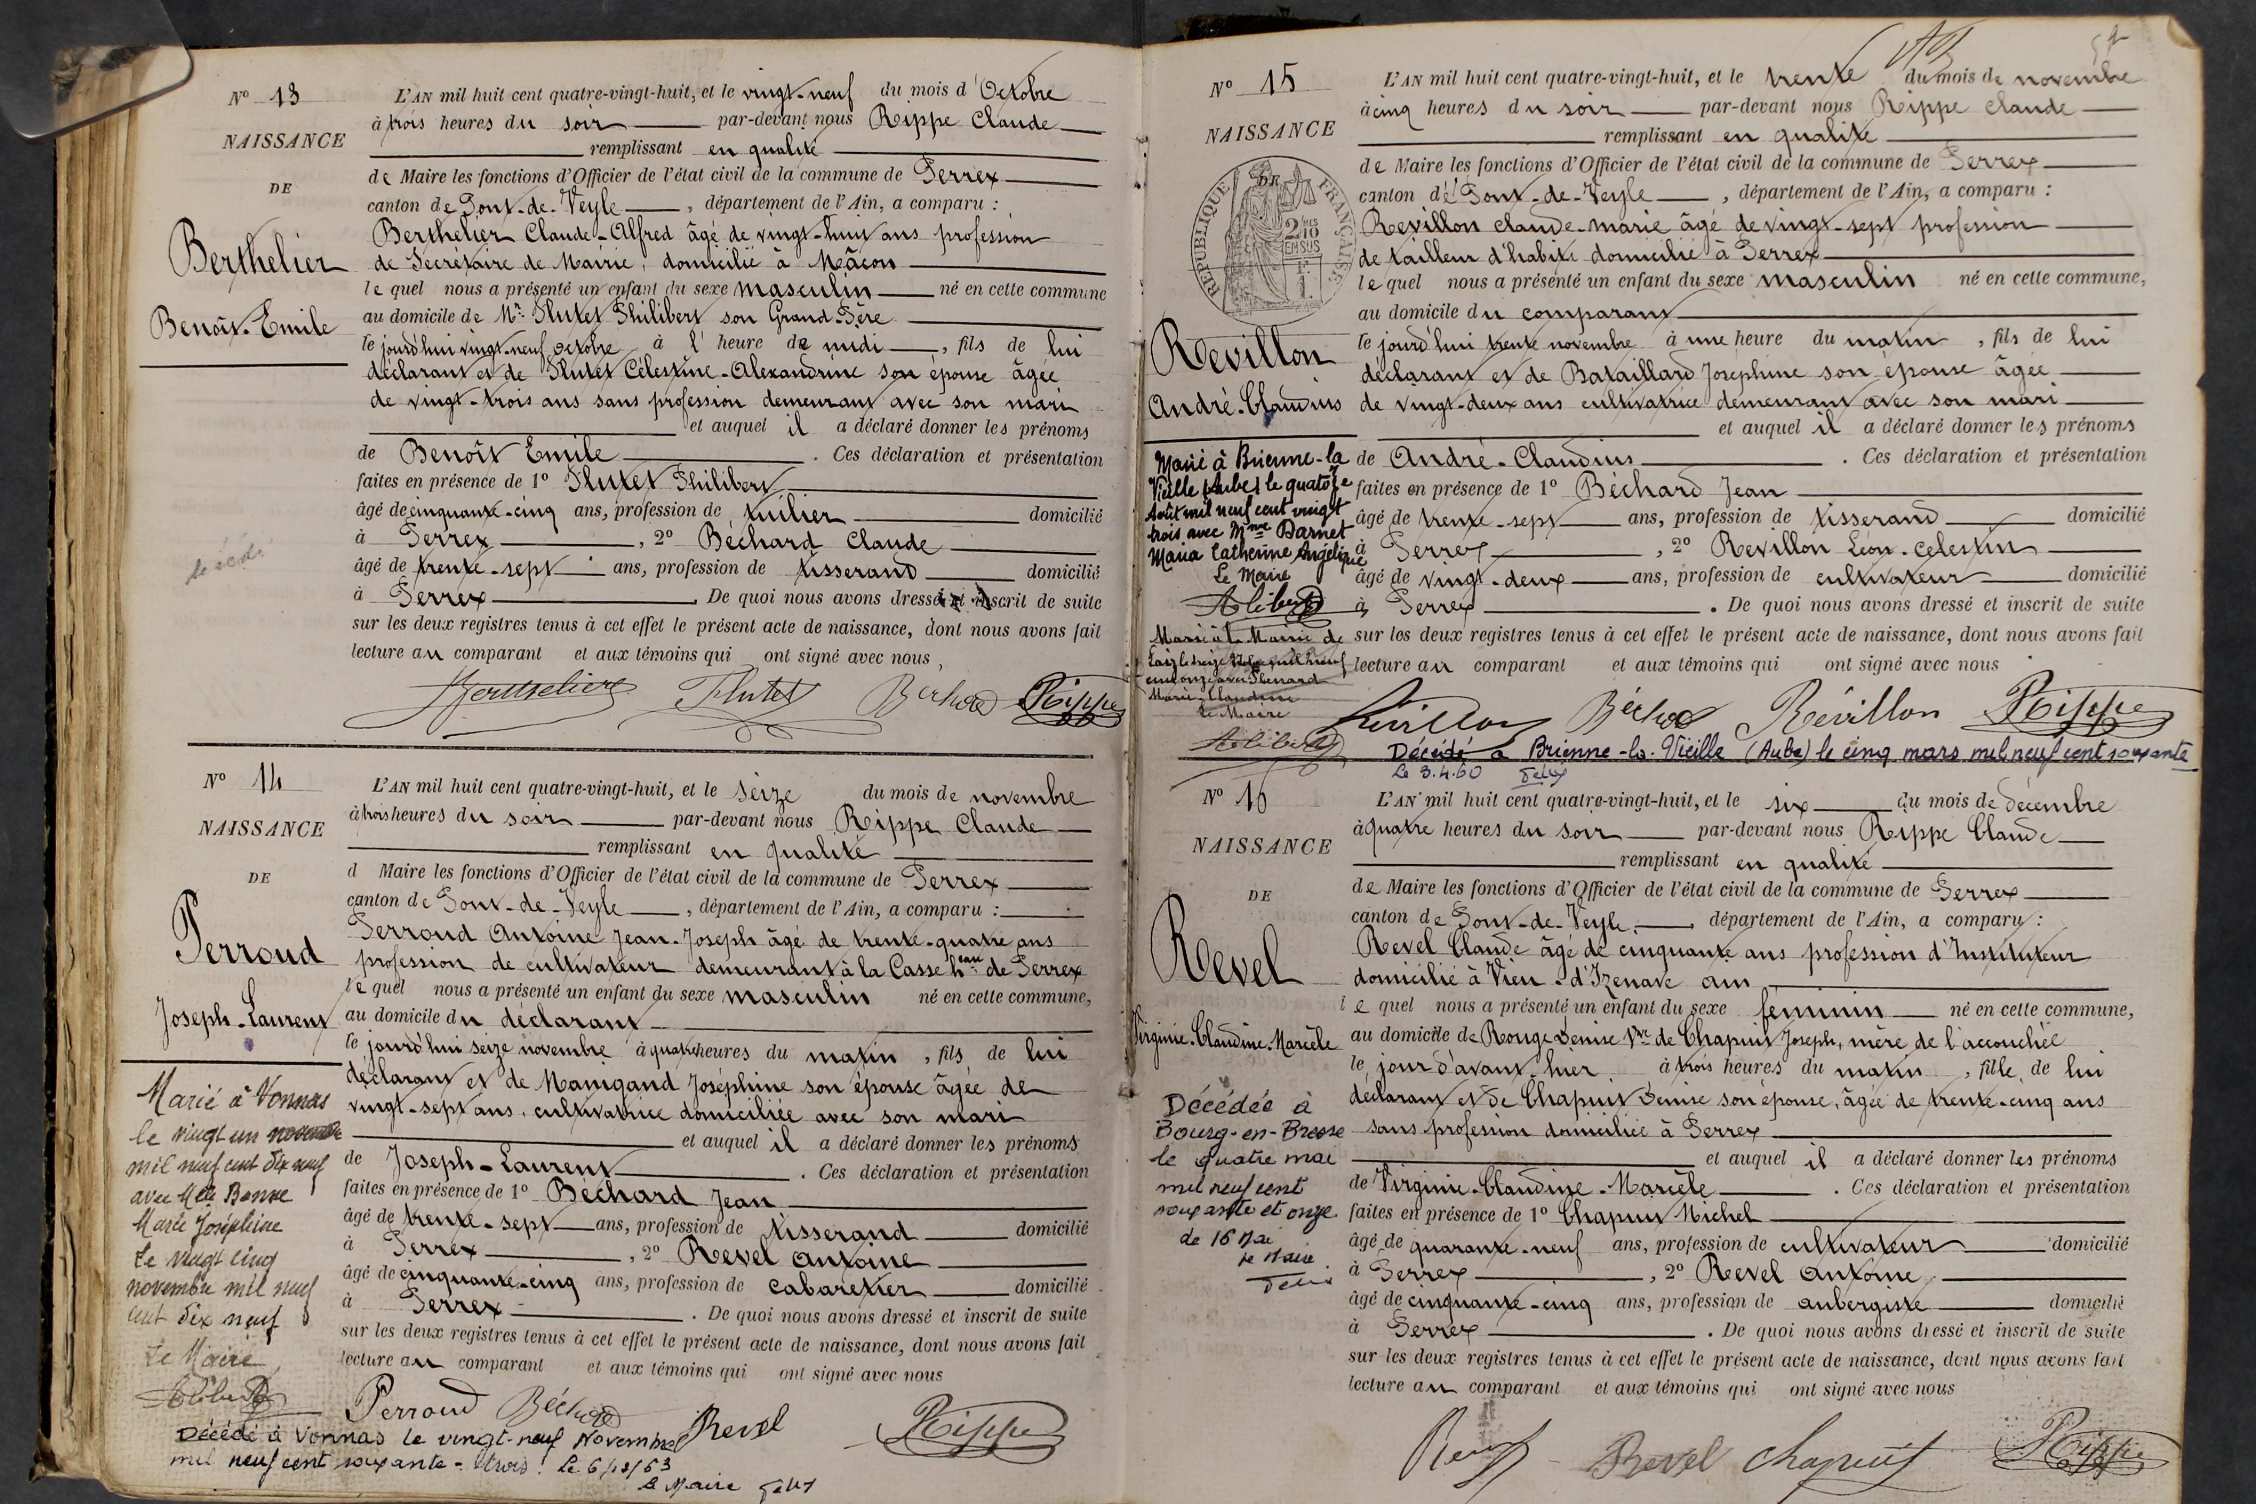 N° 13
NAISSANCE
DE
Berthelier
Benoît-Emile
décédé
L'AN mil huit cent quatre-vingt-huit, et le vingt-neuf du mois d'Octobre
à trois heures du soir par-devant nous Rippe Claude
remplissant en qualité
de Maire les fonctions d'Officier de l'état civil de la commune de Perrex
canton de Pont-de-Veyle, département de l'Ain, a comparu :
Berthelier Claude-Alfred âgé de vingt-huit ans profession
de Secrétaire de Mairie, domicilié à Mâcon
le quel nous a présenté un enfant du sexe masculin né en cette commune
au domicile de Mr Plutet Philibert son Grand-Père
le jourd'hui vingt-neuf octobre à l'heure de midi, fils de lui
déclarant et de Plutet Célestine-Alexandrine son épouse âgée
de vingt-trois ans sans profession demeurant avec son mari
et auquel il a déclaré donner les prénoms
de Benoît Emile. Ces déclaration et présentation
faites en présence de 1° Plutet Philibert
âgé de cinquante-cinq ans, profession de tuilier domicilié
à Perrex, 2° Béchard Claude
âgé de trente-sept ans, profession de tisserand domicilié
à Perrex. De quoi nous avons dressé et inscrit de suite
sur les deux registres tenus à cet effet le présent acte de naissance, dont nous avons fait
lecture au comparant et aux témoins qui ont signé avec nous,
Berthelier Plutet Béchard Rippe
N° 14
NAISSANCE
DE
Perroud
Joseph-Laurent
Marié à Vonnas
le vingt un novembre
mil neuf cent dix neuf
avec Melle Bonne
Marie Joséphine
Le vingt cinq
novembre mil neuf
cent dix neuf
Le Maire
L'AN mil huit cent quatre-vingt-huit, et le seize du mois de novembre
à trois heures du soir par-devant nous Rippe Claude
remplissant en qualité
d Maire les fonctions d'Officier de l'état civil de la commune de Perrex
canton de Pont-de-Veyle, département de l'Ain, a comparu :
Perroud Antoine Jean-Joseph âgé de trente-quatre ans
profession de cultivateur demeurant à la Casse heau de Perrex
le quel nous a présenté un enfant du sexe masculin né en cette commune,
au domicile du déclarant
le jourd'hui seize novembre à quatre heures du matin, fils de lui
déclarant et de Manigand Joséphine son épouse âgée de
vingt-sept ans, cultivatrice domiciliée avec son mari
et auquel il a déclaré donner les prénoms
de Joseph-Laurent. Ces déclaration et présentation
faites en présence de 1° Béchard Jean
âgé de trente-sept ans, profession de tisserand domicilié
à Perrex, 2° Revel Antoine
âgé de cinquante-cinq ans, profession de cabaretier domicilié
à Perrex. De quoi nous avons dressé et inscrit de suite
sur les deux registres tenus à cet effet le présent acte de naissance, dont nous avons fait
lecture au comparant et aux témoins qui ont signé avec nous
Perroud Béchard Revel Rippe
Décédé à Vonnas le vingt-neuf Novembre
mil neuf cent soixante-trois. Le 6/12/63
Le Maire
N° 15
NAISSANCE
DE
RÉPUBLIQUE FRANÇAISE
Revillon
André-Claudius
Marié à Brienne-la
Vieille (Aube) le quatorze
Août mil neuf cent vingt
trois avec Mme Darnet
Maria Catherine Angélique
Le Maire
Marié à la Mairie de
Laiz le seize
Marie-Claudine
Le Maire
L'AN mil huit cent quatre-vingt-huit, et le trente du mois de novembre
à cinq heures du soir par-devant nous Rippe Claude
remplissant en qualité
de Maire les fonctions d'Officier de l'état civil de la commune de Perrex
canton de Pont-de-Veyle, département de l'Ain, a comparu :
Revillon Claude-Marie âgé de vingt-sept profession
de tailleur d'habits domicilié à Perrex
le quel nous a présenté un enfant du sexe masculin né en cette commune,
au domicile du comparant
le jourd'hui trente novembre à une heure du matin, fils de lui
déclarant et de Bataillard Joséphine son épouse âgée
de vingt-deux ans cultivatrice demeurant avec son mari
et auquel il a déclaré donner les prénoms
de André-Claudius. Ces déclaration et présentation
faites en présence de 1° Béchard Jean
âgé de trente-sept ans, profession de tisserand domicilié
à Perrex, 2° Revillon Léon-Celestin
âgé de vingt-deux ans, profession de cultivateur domicilié
à Perrex. De quoi nous avons dressé et inscrit de suite
sur les deux registres tenus à cet effet le présent acte de naissance, dont nous avons fait
lecture au comparant et aux témoins qui ont signé avec nous
Revillon Béchard Révillon Rippe
Décédé à Brienne-la-Vieille (Aube) le cinq mars mil neuf cent soixante
Le 3.4.60
N° 16
NAISSANCE
DE
Revel
Virginie-Claudine-Marcèle
Décédée à
Bourg-en-Bresse
le quatre mai
mil neuf cent
soixante et onze
de 16 Mai
le Maire
L'AN mil huit cent quatre-vingt-huit, et le six du mois de décembre
à quatre heures du soir par-devant nous Rippe Claude
remplissant en qualité
de Maire les fonctions d'Officier de l'état civil de la commune de Perrex
canton de Pont-de-Veyle, département de l'Ain, a comparu :
Revel Claude âgé de cinquante ans profession d'Instituteur
domicilié à Vieu-d'Izenave ain
le quel nous a présenté un enfant du sexe féminin né en cette commune,
au domicile de Rouge Denise Vve de Chapuis Joseph, mère de l'accouchée
le jour d'avant hier à trois heures du matin, fille de lui
déclarant et de Chapuis Denise son épouse, âgée de trente-cinq ans
sans profession domiciliée à Perrex
et auquel il a déclaré donner les prénoms
de Virginie-Claudine-Marcèle. Ces déclaration et présentation
faites en présence de 1° Chapuis Michel
âgé de quarante-neuf ans, profession de cultivateur domicilié
à Perrex, 2° Revel Antoine
âgé de cinquante-cinq ans, profession de aubergiste domicilié
à Perrex. De quoi nous avons dressé et inscrit de suite
sur les deux registres tenus à cet effet le présent acte de naissance, dont nous avons fait
lecture au comparant et aux témoins qui ont signé avec nous
Revel Revel Chapuis Rippe